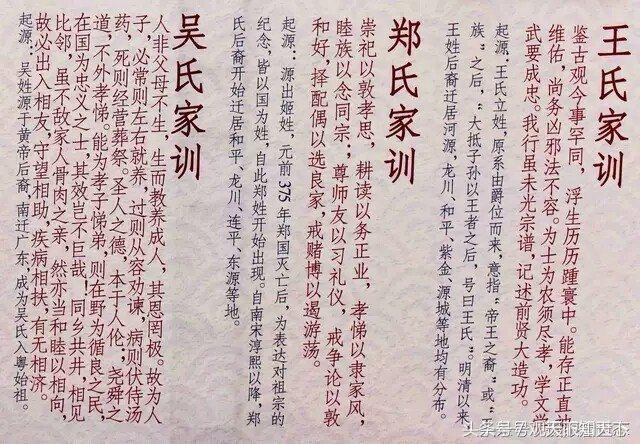 王氏家训
鉴古观今事罕同，浮生历历踵寰中。能存正直神
维佑，尚务凶邪法不容。为士为农须尽孝，学文学
武要成忠。我行虽未光宗谱，记述前贤大造功。
起源：王氏立姓，原系由爵位而来，意指“帝王之裔”或“王
族”之后，“大抵子孙以王者之后，号曰王氏”。明清以来，
王姓后裔迁居河源，龙川、和平、紫金、源城等地均有分布。
郑氏家训
崇祀以敦孝思，耕读以务正业，孝悌以隶家风，
睦族以念同宗；尊师友以习礼仪，戒争论以敦
和好，择配偶以选良家，戒赌博以遏游荡。
起源：源出姬姓，元前375年郑国灭亡后，为表达对祖宗的
纪念，皆以国为姓，自此郑姓开始出现。自南宋淳熙以降，郑
氏后裔开始迁居和平、龙川、连平、东源等地。
吴氏家训
人非父母不生，生而教养成人，其恩罔极。故为人
子，必常则左右就养，过则从容劝谏，病则伏侍汤
药，死则经营葬祭。圣人之德，本于人伦；尧舜之
道，不外孝悌。能为孝子悌弟，则在野为循良之民，
在国为忠义之士，其效岂不巨哉！同乡共井，相见
比邻，虽不敌家人骨肉之亲，然亦当和睦以相向，
故必出入相友，守望相助，疾病相扶，有无相济。
起源：吴姓源于黄帝后裔，南迁广东，成为吴氏入粤始祖。